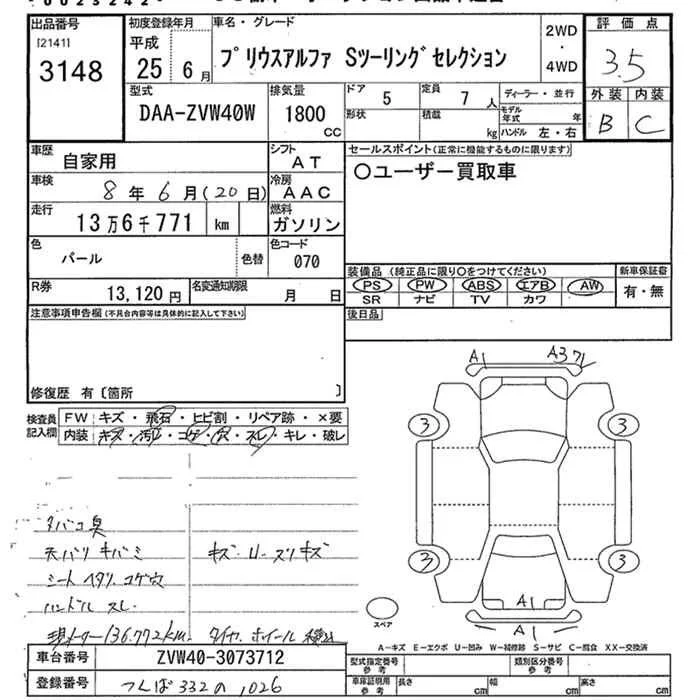 出品番号 [2141] 3148
初度登録年月 平成 25年 6月
車名・グレード プリウスアルファ Sツーリングセレクション
2WD ・ 4WD
評価点 3.5
外装 B 内装 C
型式 DAA-ZVW40W
排気量 1800 CC
ドア 5 定員 7人 ディーラー・並行
形状 積載 kg モデル年式 年
ハンドル 左・右
車歴 自家用
シフト AT
セールスポイント(正常に機能するものに限ります)
〇ユーザー買取車
車検 8年 6月(20日)
冷房 AAC
走行 13万6千771 km
燃料 ガソリン
色 パール 色替
色コード 070
装備品 (純正品に限り〇をつけてください)
新車保証書 有・無
PS PW ABS エアB AW
SR ナビ TV カワ
R券 13,120円
名変通知期限 月 日
後日品
注意事項申告欄(不具合内容等は具体的に記入して下さい)
修復歴 有〔箇所 〕
検査員記入欄
FW キズ・飛石・ヒビ割・リペア跡・×要
内装 キズ・汚レ・コゲ・穴・スレ・キレ・破レ
A1 A3 7
3 3
3 3
A1 A1
スペア
タバコ臭
天バリ キバミ キズ・U・スリキズ
シート ヘタリ コゲ穴
ハンドル スレ
現メーター136.772km. タイヤ. ホイール
A-キズ E-エクボ U-凹み W-補修跡 S-サビ C-腐食 XX-交換済
車台番号 ZVW40-3073712
登録番号 つくば332の1026
型式指定番号 参考 類別区分番号 参考
車庫証明用 参考 長さ cm 幅 cm 高さ cm